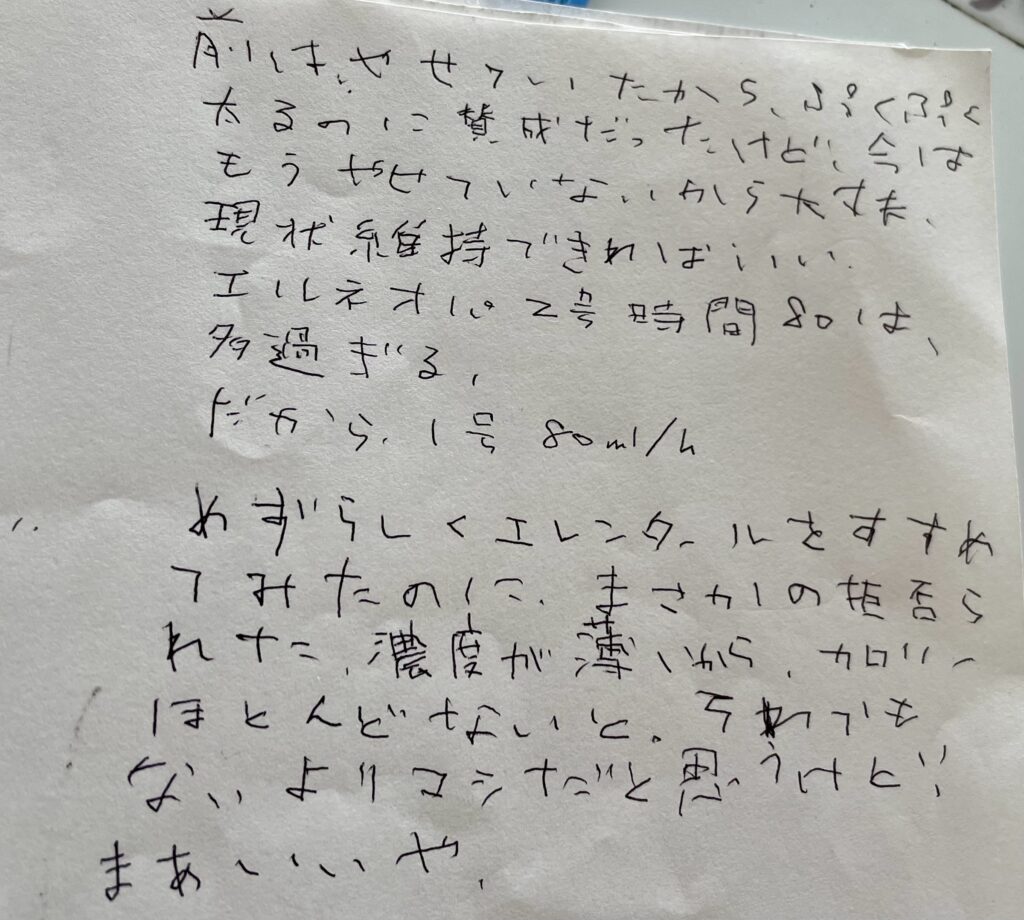 前は、やせていたから、ぷくぷく
太るのに賛成だったけど、今は
もうやせていないから大丈夫、
現状維持できればいい.
エルネオパ2号時間80は、
多過ぎる,
だから、1号 80ml/h
めずらしくエレンタールをすすめ
てみたのに、まさかの拒否ら
れた、濃度が薄いから、カロリー
ほとんどないと。それでも
ないよりマシだと思うけど、
まあいいや、